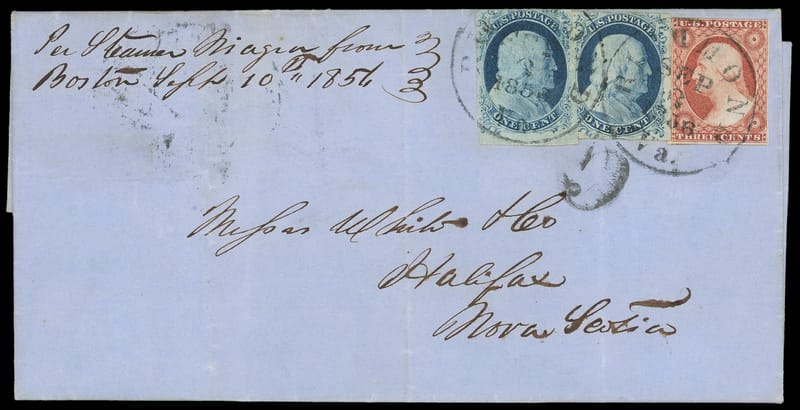 Per Steamer Niagra from
Boston Sept 10th 1856
U.S. POSTAGE
ONE CENT
U.S. POSTAGE
ONE CENT
U.S. POSTAGE
THREE CENTS
SEP
Va.
5
Messrs White & Co
Halifax
Nova Scotia